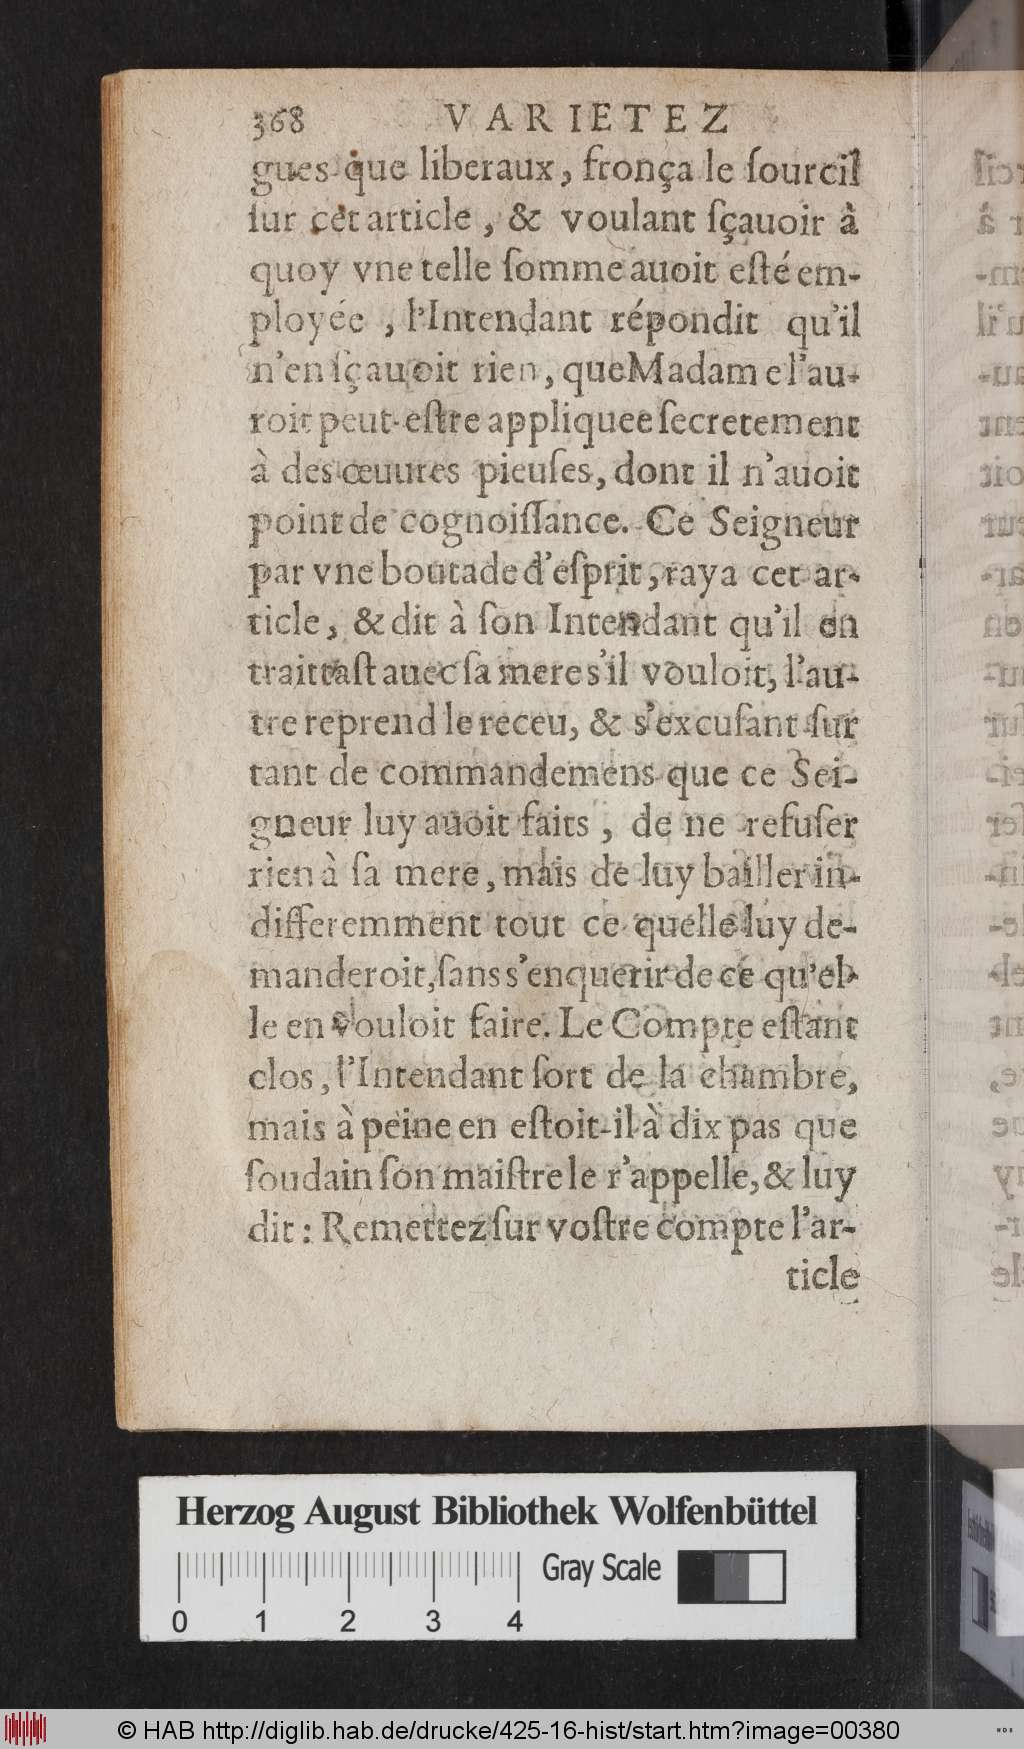 368 VARIETEZ
gues que liberaux, fronça le ſourcil
ſur cét article, & voulant ſçauoir à
quoy vne telle ſomme auoit eſté em-
ployée, l'Intendant répondit qu'il
n'en ſçauoit rien, que Madame l'au-
roit peut-eſtre appliquee ſecretement
à des œuures pieuſes, dont il n'auoit
point de cognoiſſance. Ce Seigneur
par vne boutade d'eſprit, raya cet ar-
ticle, & dit à ſon Intendant qu'il en
traittaſt auec ſa mere s'il vouloit, l'au-
tre reprend le receu, & s'excuſant ſur
tant de commandemens que ce Sei-
gneur luy auoit faits, de ne refuſer
rien à ſa mere, mais de luy bailler in-
differemment tout ce quelle luy de-
manderoit, ſans s'enquerir de ce qu'el-
le en vouloit faire. Le Compte eſtant
clos, l'Intendant ſort de la chambre,
mais à peine en eſtoit-il à dix pas que
ſoudain ſon maiſtre le r'appelle, & luy
dit: Remettez ſur voſtre compte l'ar-
ticle
Herzog August Bibliothek Wolfenbüttel
Gray Scale
0 1 2 3 4
© HAB http://diglib.hab.de/drucke/425-16-hist/start.htm?image=00380